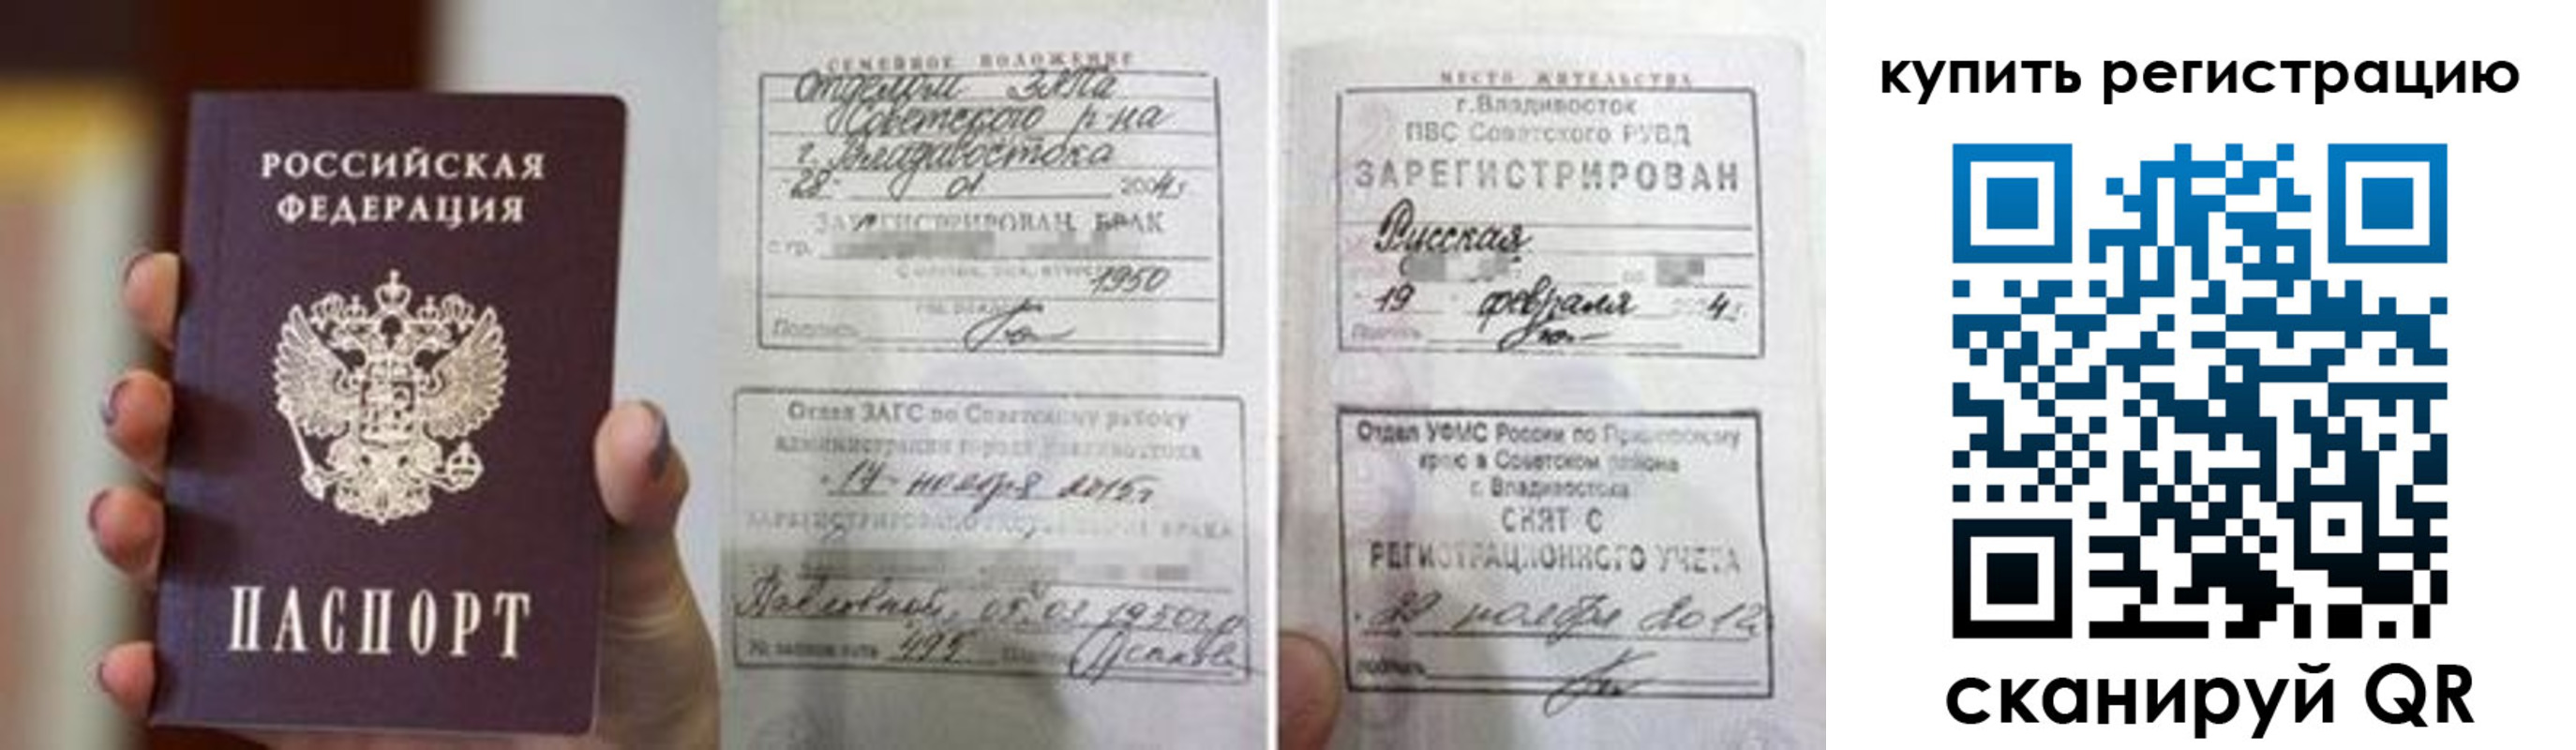 РОССИЙСКАЯ
ФЕДЕРАЦИЯ
ПАСПОРТ
СЕМЕЙНОЕ ПОЛОЖЕНИЕ
Отделом ЗАГСа
Советского р-на
г. Владивостока
28 01 2004 г.
ЗАРЕГИСТРИРОВАН БРАК
с гр.
1950
Подпись
Отдел ЗАГС по Советскому району
администрации города Владивостока
17 ноября 2015 г.
БРАКА
Павловной, 05.03.1950 г.р
495
МЕСТО ЖИТЕЛЬСТВА
г. Владивосток
ПВС Советского РУВД
ЗАРЕГИСТРИРОВАН
Русская
19 февраля 4 г.
Подпись
Отдел УФМС России по Приморскому
краю в Советском районе
г. Владивостока
СНЯТ С
РЕГИСТРАЦИОННОГО УЧЕТА
29 ноября 2012
подпись
купить регистрацию
сканируй QR